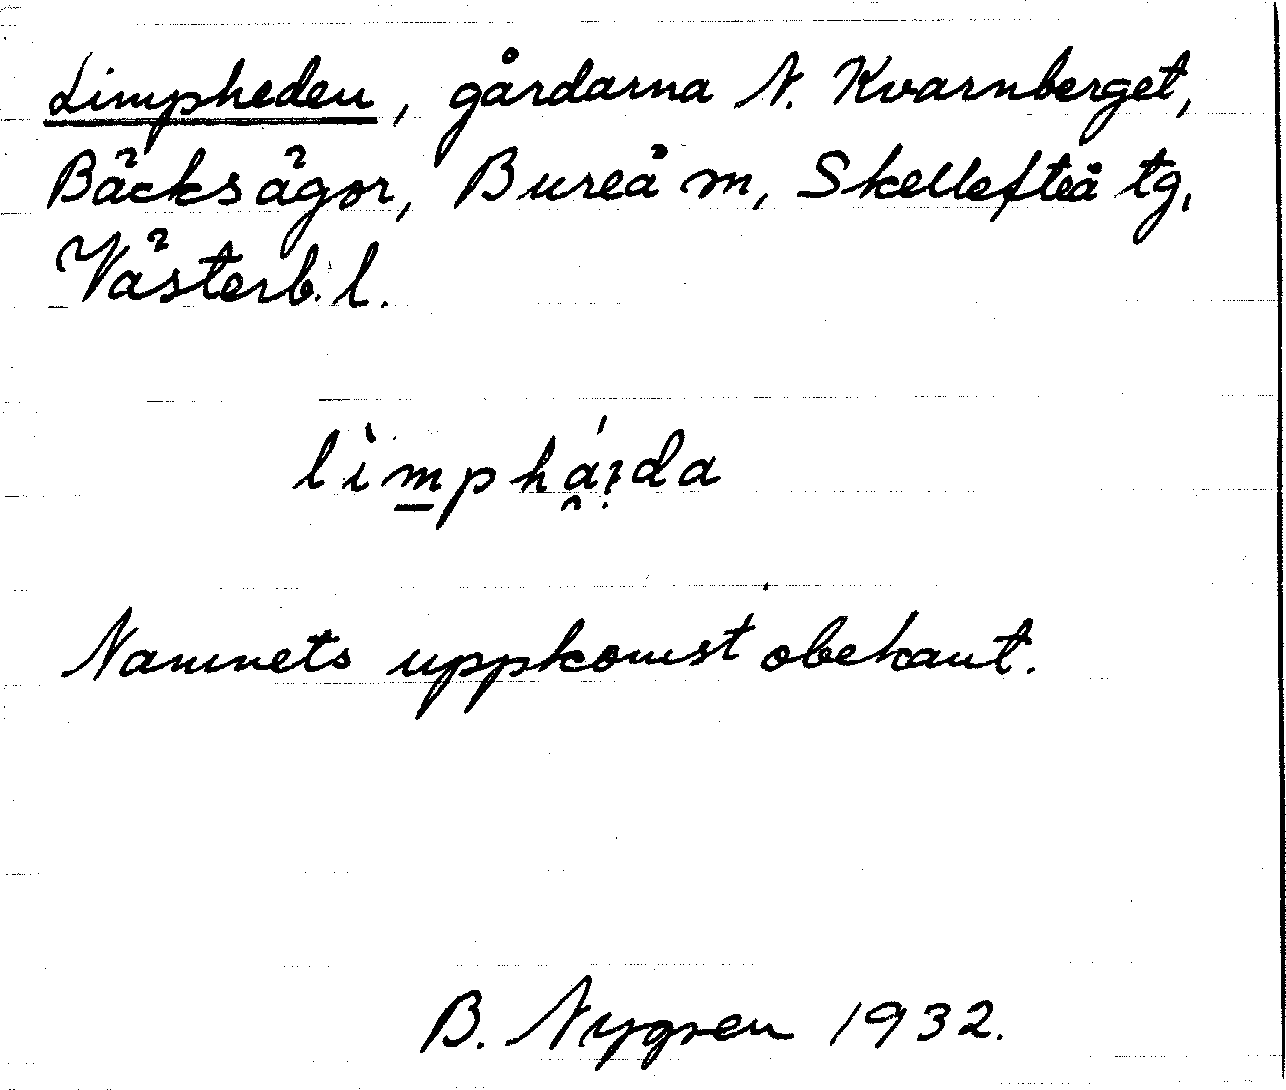 Limpheden, gårdarna N. Kvarnberget,
Bäcks ägor, Bureå m, Skellefteå tg,
Västerb. l.
lìmphá̯ịda
Namnets uppkomst obekant.
B. Nygren 1932.